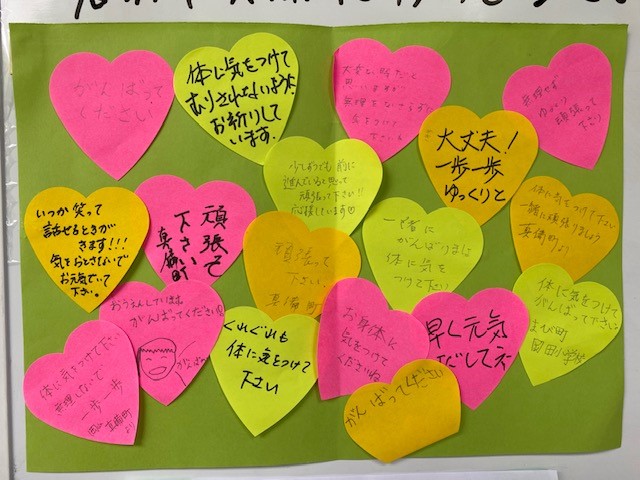 がんばって
ください
体に気をつけて
むりされないように
お祈りして
います。
大変な時だと
思いますが
無理をなさらずに
気をつけて
下さい
無理せず
ゆっくり
頑張って
下さい
大丈夫！
一歩一歩
ゆっくりと
少しずつでも前に
進んでいると思って
頑張って下さい!!
応援しています
いつか笑って
話せるときが
きます!!!
気をおとさないで
お元気でいて
下さい。
頑張って
下さい
真備町
頑張って
下さい。
真備町
一緒に
がんばりましょ
体に気を
つけて下さい
体に気をつけて下さい
一緒に頑張りましょう
真備町より
おうえんしています。
がんばってください
がんばれ
体に気をつけて下さい
無理しないで
一歩一歩
岡山 真備町
より
くれぐれも
体に気をつけて
下さい
お身体に
気をつけて
くださいね
早く元気
だして
体に気をつけて
がんばって下さい
まび町
岡田小学校
がんばってください